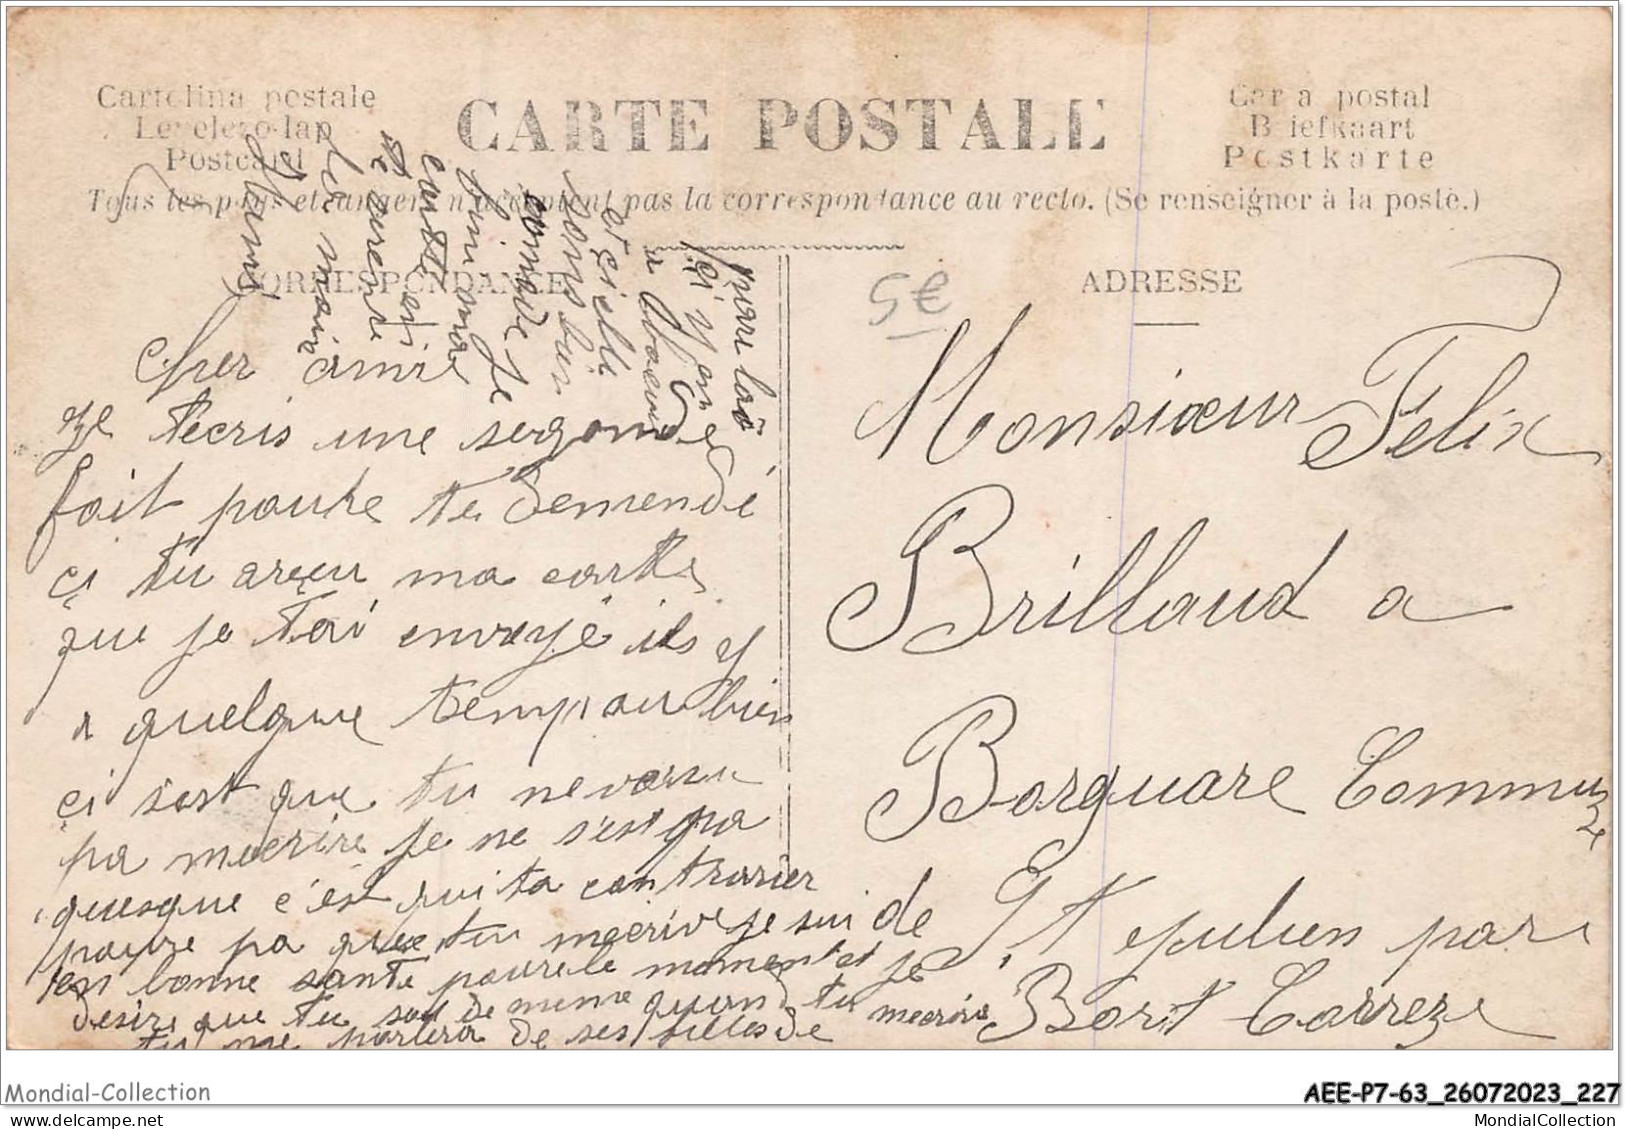 Cartolina postale
Levelezo-lap
Postcard
CARTE POSTALE
Carta postal
Briefkaart
Postkarte
Tous les pays etrangers n'acceptent pas la correspondance au recto. (Se renseigner à la poste.)
CORRESPONDANCE
ADRESSE
5€
Cher amie
ze t'ecris une segonde
fait poure te demendé
çi tu areçu ma carte
que je t'ai envoyé ils y
a quelque temp ou bien
çi s'est que tu ne
pa mecrire je ne s'est pa
quesque c'est qui ta contrarier
poure pa que tu mecrive je sui de
en bonne santé poure le moment et je
desire que tu soit de meme quand tu mecrire
tu me parlera de ses filles de
par la
ici y en
a
et çi elle
sons bien
comode je
fini ma
carte en
te serent
la main
amis
Monsiœur Felix
Brillaud a
Borquare Commune
St epulien par
Bort Correze
Mondial-Collection
AEE-P7-63_26072023_227
MondialCollection